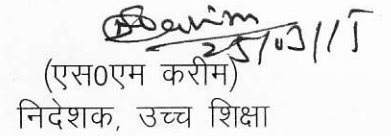 25/03/15
(एस0एम करीम)
निदेशक, उच्च शिक्षा